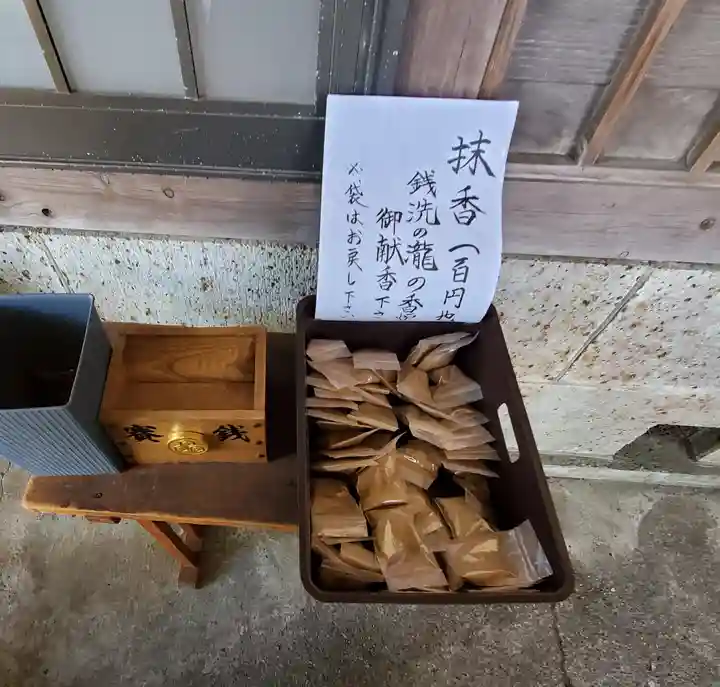 抹香 一百円
銭洗の瀧の香
御献香下
※袋はお戻し下さ
賽銭